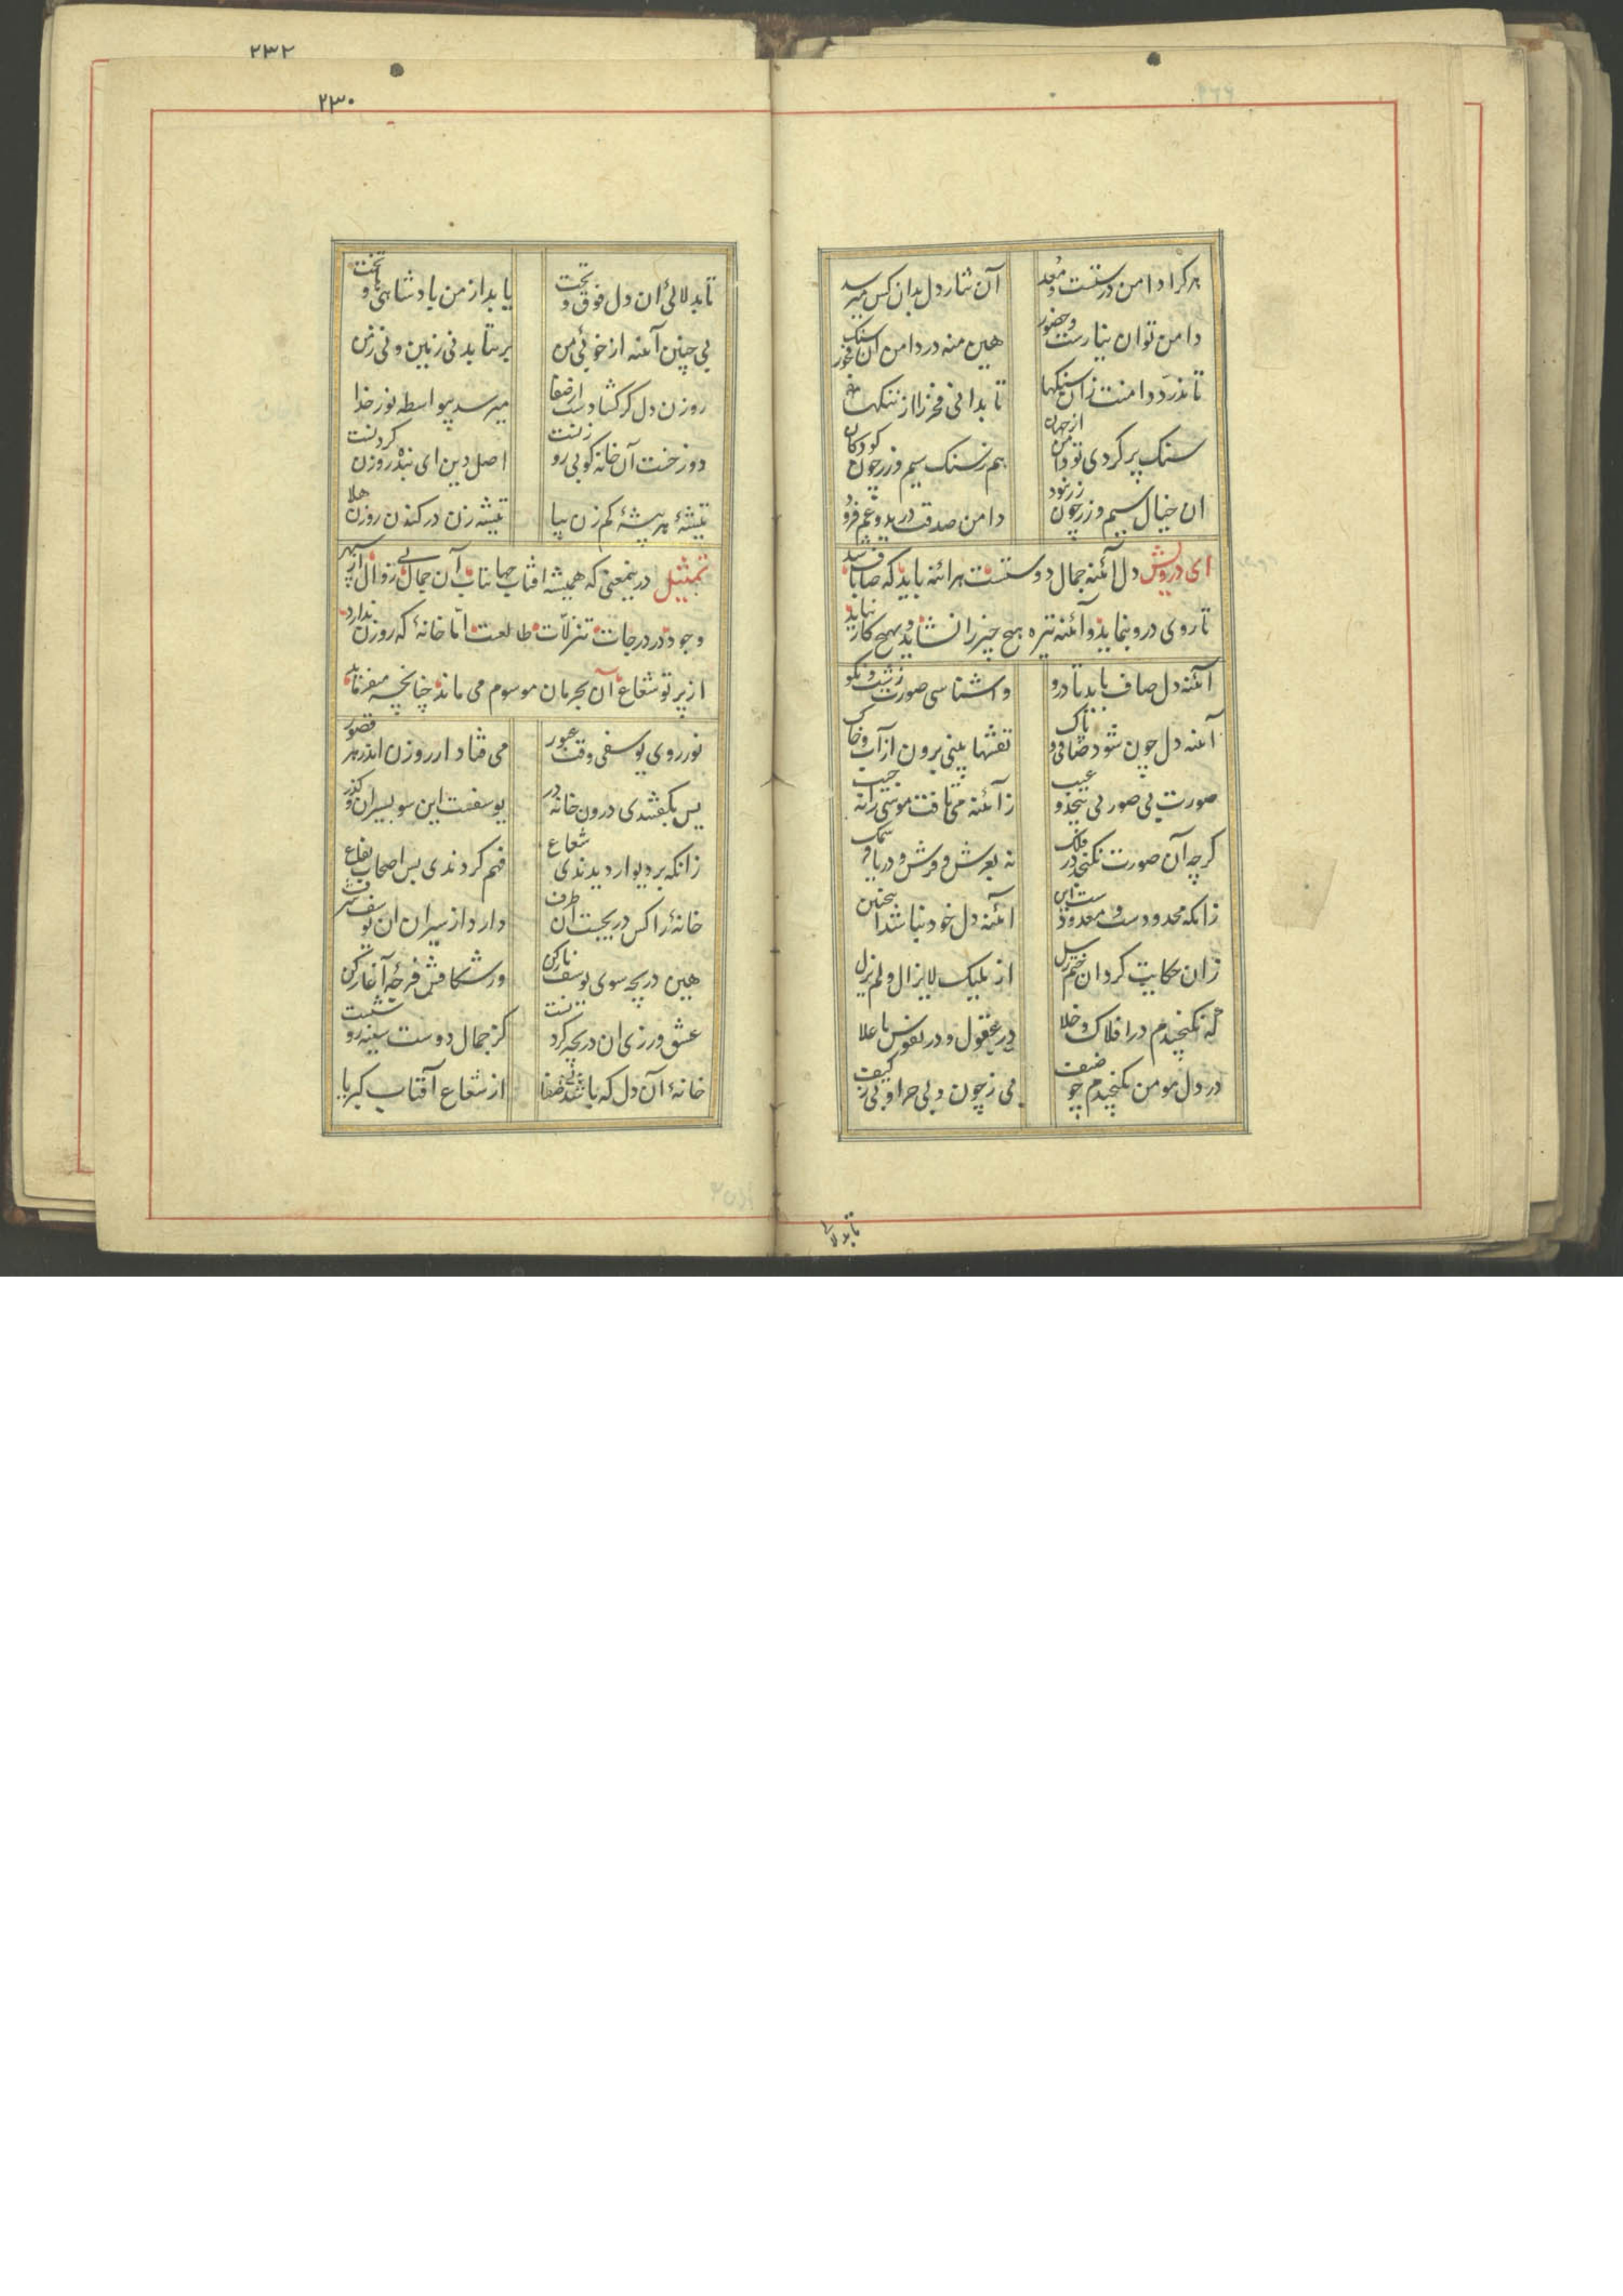 هرکرا دامن درستست و معد
آن نثار دل بدان کس میرسد
دامن توان نیازست و حضور
هین منه در دامن آن سنک فجور
تا ندرد دامنت زان سنکها
تا بدانی فخر را از ننکها
سنک پر کردی تو دامن از جهان
هم ز سنک سیم و زر چون کودکان
ان خیال سیم و زر چون زر نبود
دامن صدقت درید و غم فزود
ای درویش دل آئنه جمال دوستست هر ائنه باید که صاف باشد
تا روی درو بنماید و آئنه تیره هیچ چیز را نشاید و بهیچ کار نیاید
آئنه دل صاف باید تا درو
واشناسی صورت زشت و نکو
آئنه دل چون شود صافی و پاک
نقشها بینی برون از آب و خاک
صورت بی صورتی بیحد و عیب
ز آئنه می تافت موسی را ز جیب
کرچه آن صورت نکنجد در فلک
نه بعرش و فرش و دریا و سمک
زانکه محدودست و معدودست این
ائنه دل خود نباشد اینچنین
زان حکایت کرد ان ختم رسل
از ملیک لایزال و لم یزل
که نکنجیدم در افلاک و خلا
در عقول و در نفوس با علا
در دل مومن بکنجیدم چو ضیف
بی ز چون و بی چرا و بی ز کیف
تابدلا
۲۳۲
۲۳۰
تا بدلالی ان دل فوق و تحت
یابد از من پادشاهی و تخت
بی چنین آئنه از خوئی من
برنتابد نی زمین و نی زمن
روزن دل کر کشادست از صفا
میرسد بیواسطه نور خدا
دوزخست آن خانه کو بی روزنست
اصل دین ای بنده روزن کردنست
تیشهٔ هر بیشهٔ کم زن بیا
تیشه زن در کندن روزن هلا
تمثیل درینمعنی که همیشه افتاب جهانتاب آن جمال بی زوال از سپهر
وجود در درجات تنزلات طالعست اما خانهٔ که روزن ندارد
از پرتو شعاع آن بحرمان موسوم می ماند چنانچه میفرماید
نور روی یوسفی وقت عبور
می فتاد از روزن اندر هر قصور
پس بکفتندی درون خانه در
یوسفست این سو بسیران و کذر
زانکه بر دیوار دیدندی شعاع
فهم کردندی پس اصحاب بقاع
خانهٔ را کش دریچست آن طرف
دارد از سیران ان یوسف شرف
هین دریچه سوی یوسف باز کن
وز شکافش فرجهٔ آغاز کن
عشق ورزی ان دریچه کردنست
کز جمال دوست سینه روشنست
خانهٔ آن دل که باشد بی ضیا
از شعاع آفتاب کبریا